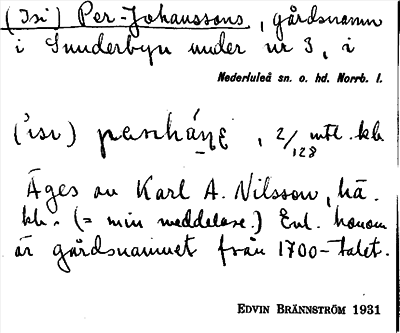 (Isi) Per-Johanssons, gårdsnamn
i Sunderbyn under nr 3, i
Nederluleå sn. o. hd. Norrb. l.
, 2/128 mtl. kb
Äges av Karl A. Nilsson, hä.
kb. (= min meddelare.) Enl. honom
är gårdsnamnet från 1700-talet.
EDVIN BRÄNNSTRÖM 1931